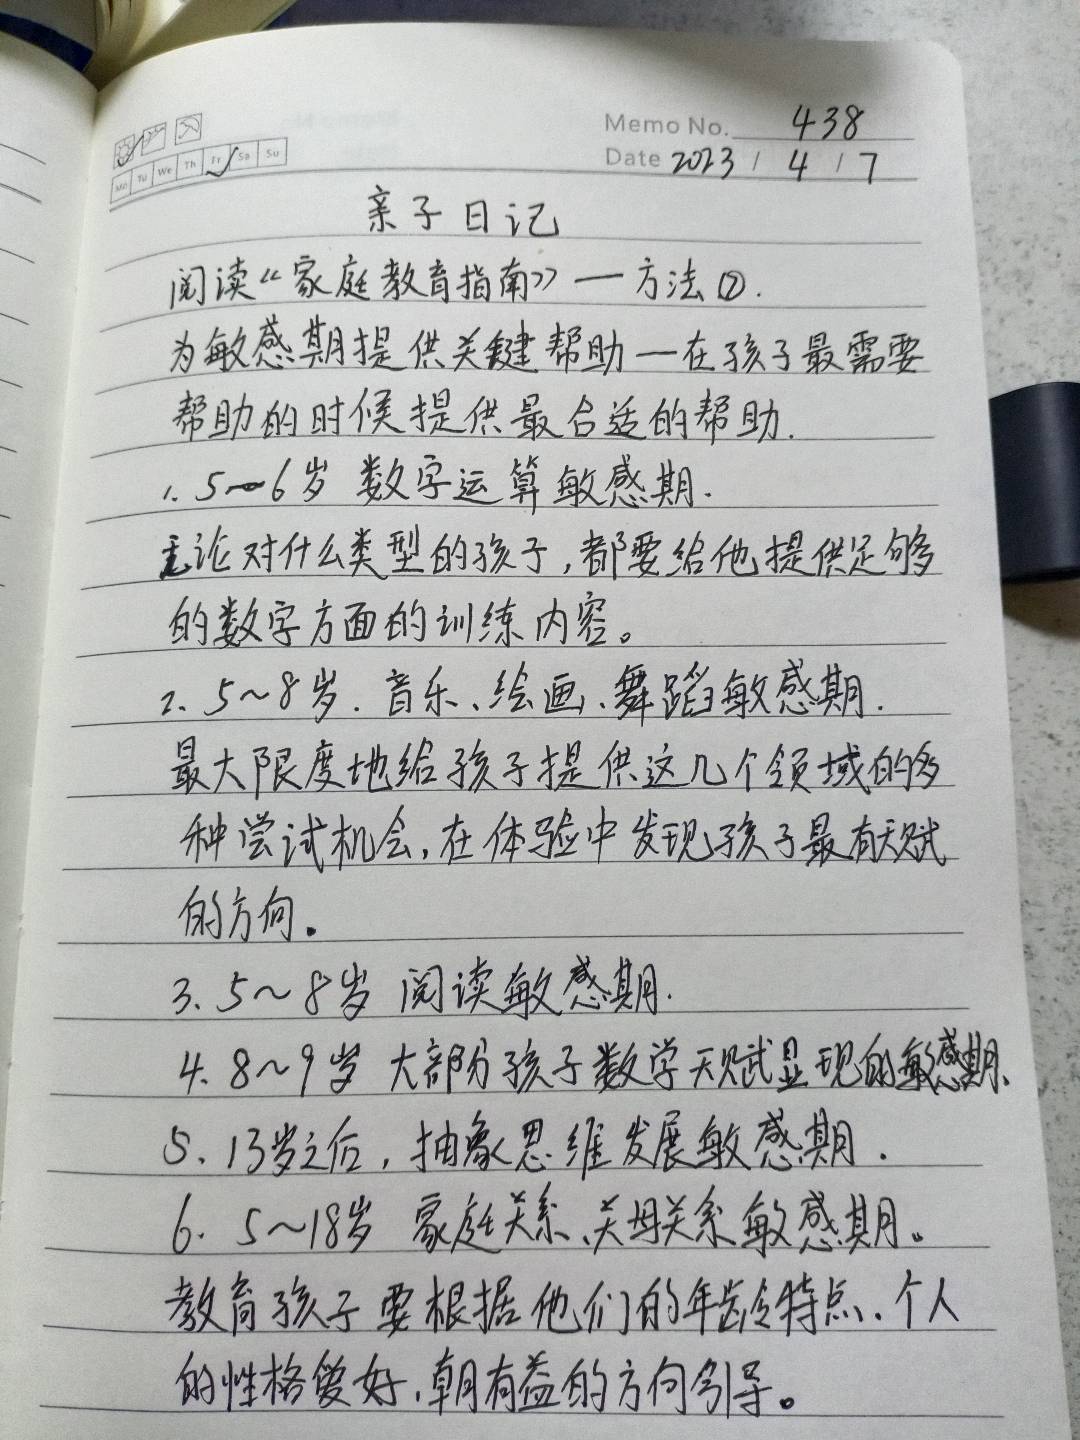 Memo No. 438
Mo Tu We Th Fr Sa Su
Date 2023 / 4 / 7
亲子日记
阅读《家庭教育指南》一方法⑦.
为敏感期提供关键帮助—在孩子最需要
帮助的时候提供最合适的帮助.
1. 5~6岁 数字运算敏感期.
无论对什么类型的孩子,都要给他提供足够
的数字方面的训练内容。
2. 5~8岁. 音乐、绘画、舞蹈敏感期.
最大限度地给孩子提供这几个领域的多
种尝试机会,在体验中发现孩子最有天赋
的方向.
3. 5~8岁 阅读敏感期.
4. 8~9岁 大部分孩子数学天赋显现的敏感期、
5. 13岁之后,抽象思维发展敏感期.
6. 5~18岁 家庭关系、关母关系敏感期。
教育孩子要根据他们的年龄特点、个人
的性格爱好,朝有益的方向引导。